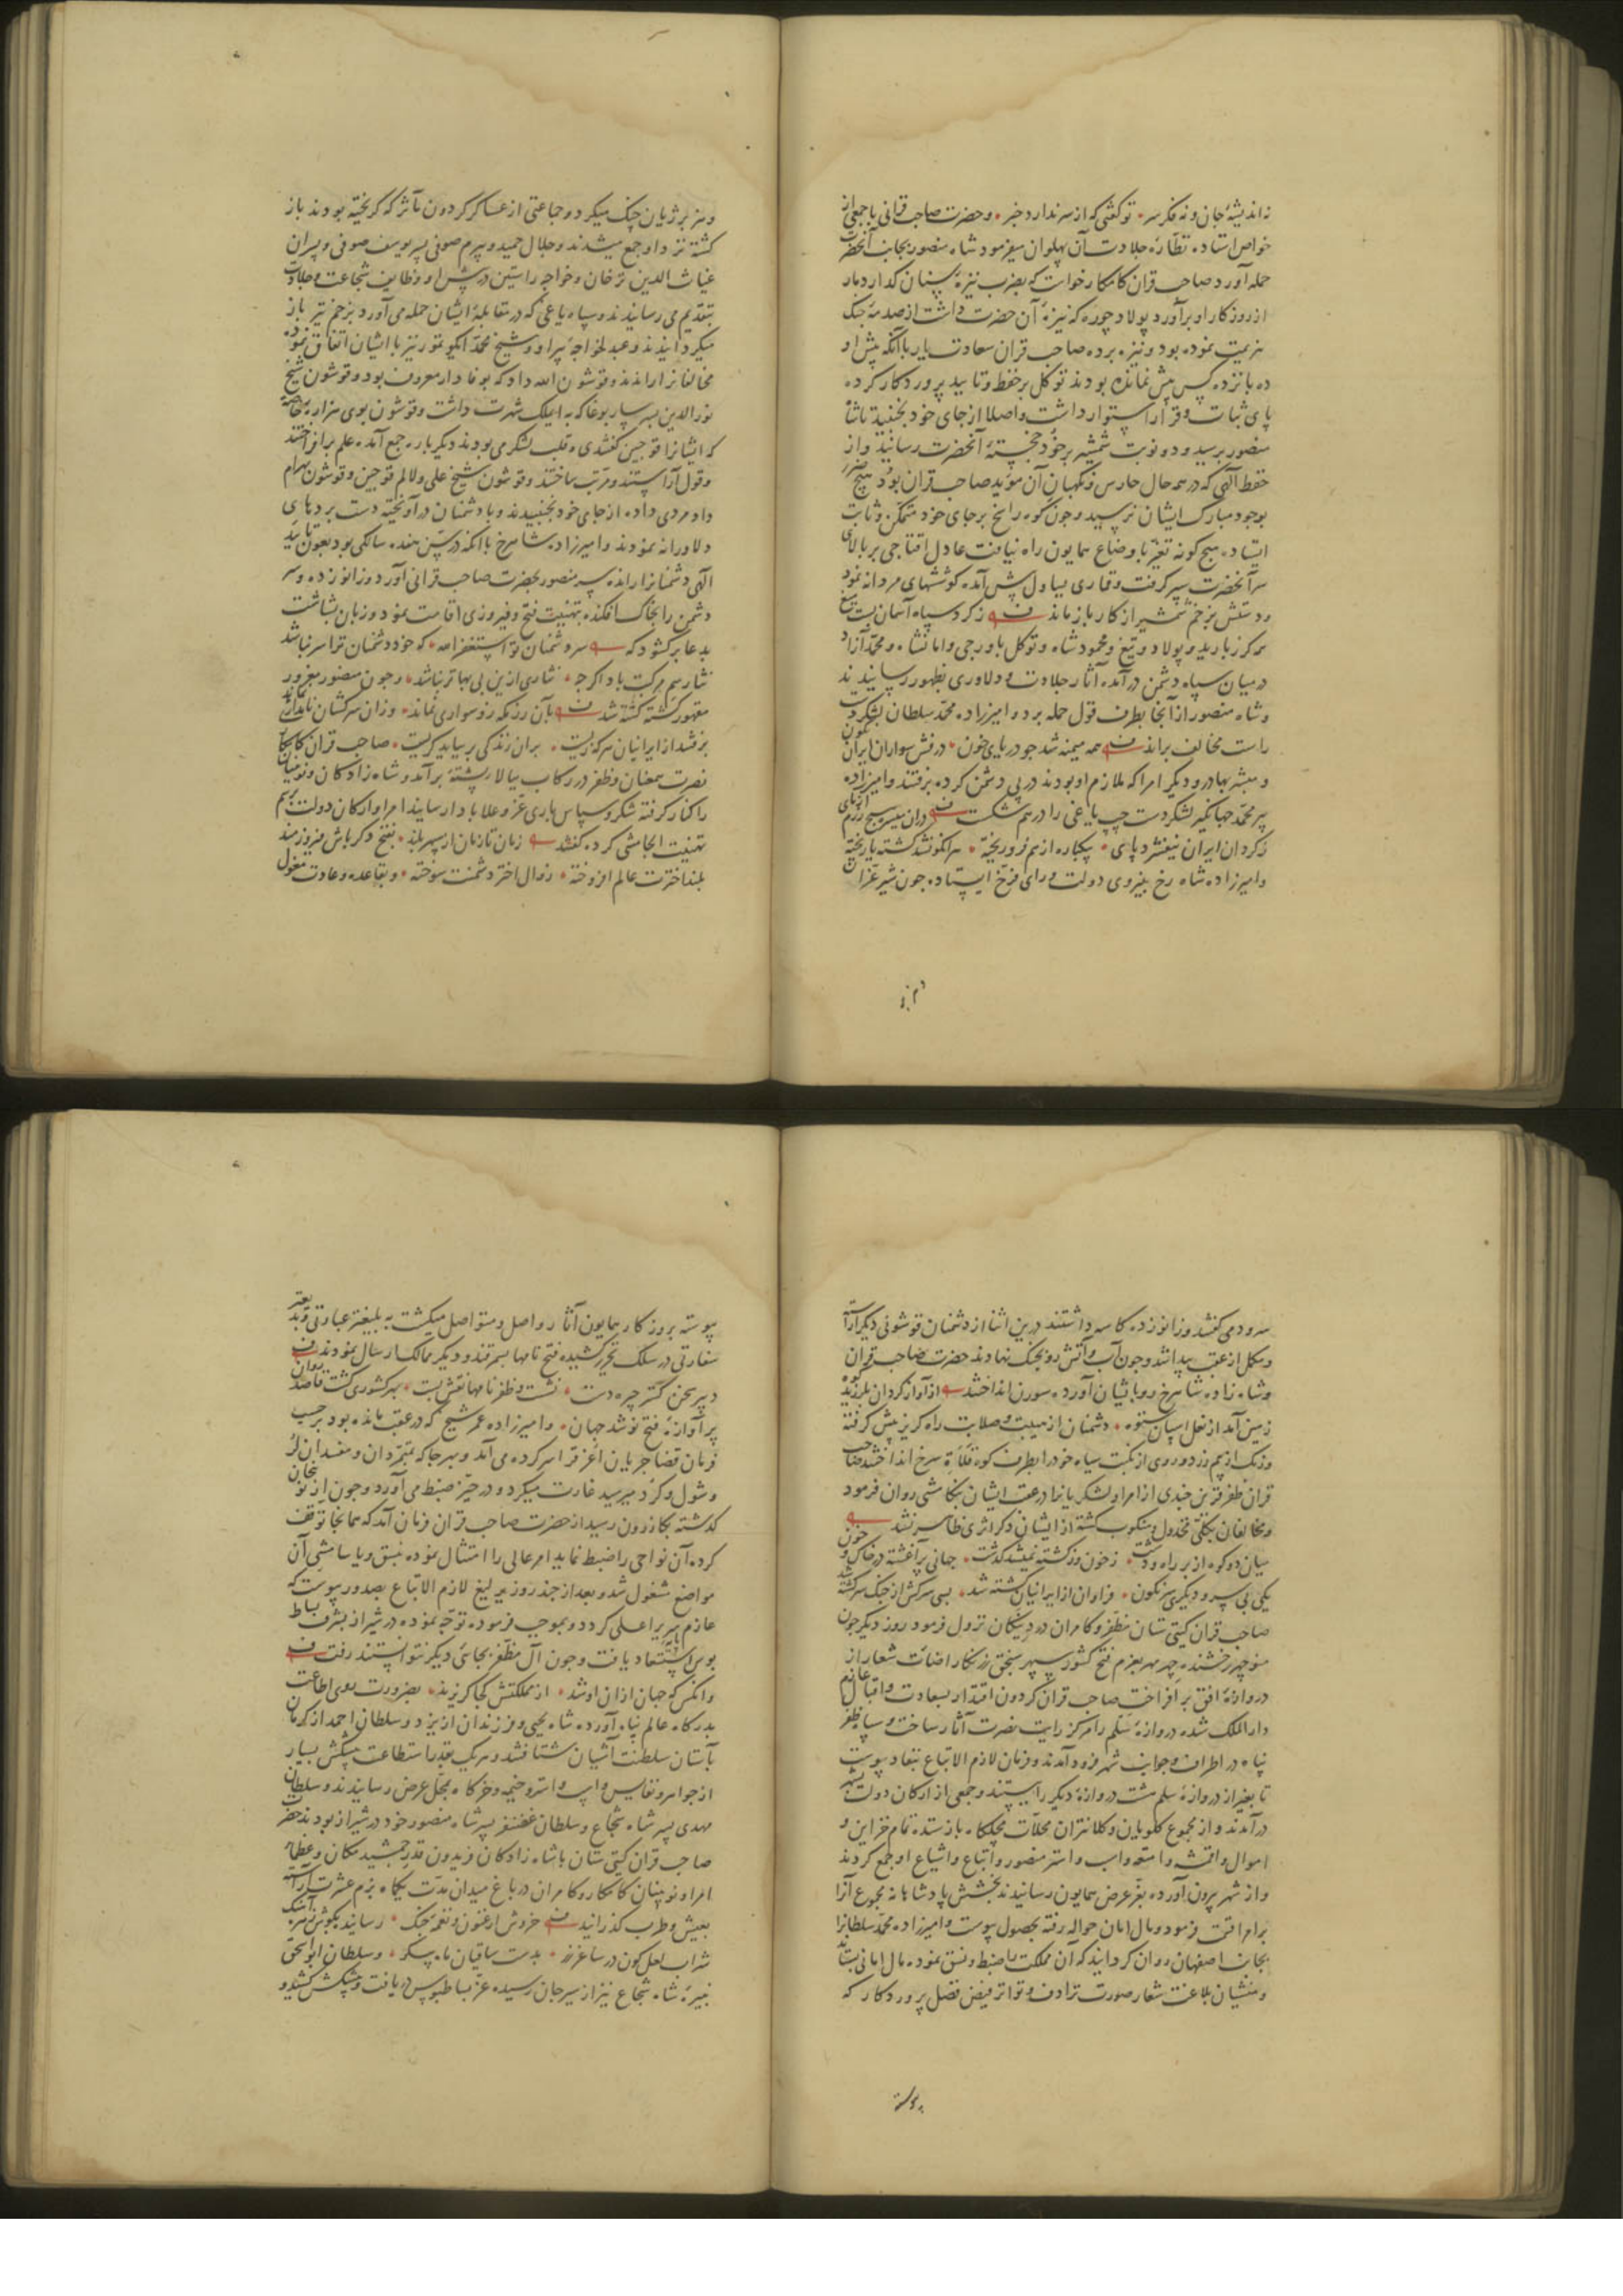 نه اندیشهٔ جان و نه فکر سر • تو گفتی که از سر ندارد خبر • و حضرت صاحب قرانی با جمعی از
خواص استاده نظارهٔ جلادت آن پهلوان میفرمود شاه منصور بجانب آنحضرت
حمله آورد صاحب قران کامکار خواست که بضرب نیزهٔ سنان گذار دمار
از روزگار او برآورد پولاد چوره که نیزهٔ آن حضرت داشت از صدمهٔ جنک
هزیمت نموده بود و نیزه برده صاحب قران سعادت یار با آنکه پیش او
ده پانزده کس بیش نمانده بودند توکل بر حفظ و تایید پروردکار کرده
پای ثبات و قرار استوار داشت و اصلا از جای خود نجنبید تا شاه
منصور برسید و دو نوبت شمشیر بر خود خجستهٔ آنحضرت رسانید و از
حفظ الهی که در همه حال حارس و نکهبان آن مؤید صاحب قران بود هیچ ضرر
بوجود مبارک ایشان نرسید و چون کوه راسخ بر جای خود متمکن و ثابت
ایستاد هیچ کونه تغیر باوضاع همایون راه نیافت عادل اقتاجی بر بالای
سر آنحضرت سپر کرفت و قماری یساول پیش آمده کوششهای مردانه نمود
و دستش بزخم شمشیر از کار باز ماند ز کرد سپاه آسمان بست میغ
همه کرز بارید و پولاد و تیغ و محمود شاه و توکل باورجی و امانشاه و محمد آزاد
در میان سپاه دشمن درآمده آثار جلادت و دلاوری بظهور رسانیدند
و شاه منصور از آنجا بطرف قول حمله برد و امیرزاده محمد سلطان لشکر دست
راست مخالف براند همه میمنه شد چو دریای خون • درفش سواران ایران نکون
و مبشر بهادر و دیکر امرا که ملازم او بودند در پی دشمن کرده برفتند و امیرزاده
پیر محمد جهانگیر لشکر دست چپ یاغی را درهم شکست دران میسره هیچ رزم آزمای
ز کردان ایران نیفشرد پای • یکباره از هم فرو ریخته • سرانکونشد کشته یا ریخته
و امیرزاده شاه رخ بنیروی دولت و رای فرخ ایستاده چون شیر غران
و هژبر ژیان جنک میکرد و جماعتی از عساکر کردون مآثر که کریخته بودند باز
کشته نزد او جمع میشدند و جلال حمید و بیرم صوفی پسر یوسف صوفی و پسران
غیاث الدین ترخان و خواجه راستین در پیش او وظایف شجاعت و جلادت
بتقدیم می رسانیدند و سپاه یاغی که در مقابلهٔ ایشان حمله می آورد بزخم تیر باز
میکردانیدند و عبد الخواجه پیراو و شیخ محمد ایکو تمور نیز با ایشان اتفاق نموده
مخالفانرا براندند و قوشون الله داد که بوفادار معروف بود و قوشون شیخ
نور الدین پسر ساربوغا که به ایملک شهرت داشت و قوشون بوی هزاره خاصه
که ایشانرا قوجین کفتندی و قلب لشکر می بودند دیکر باره جمع آمده علم برافراختند
و قول آراستند و مرتب ساختند و قوشون شیخ علی و لالم قوجین و قوشون بهرام
داد مردی داده از جای خود نجنبیدند و با دشمنان درآویخته دست بردهای
دلاورانه نمودند و امیرزاده شاهرخ با آنکه در سن هفده سالکی بود بعون تایید
الهی دشمنانرا رانده سر منصور بحضرت صاحب قرانی آورد و زانو زده و سر
دشمن را بخاک افکنده بتهنیت فتح و فیروزی اقامت نمود و زبان بشاشت
بدعا برکشود که سر دشمنان تو استغفر الله • که خود دشمنان ترا سر نباشد
نثار سم مرکبت باد اکرچه • نثاری ازین بی بها تر نباشد • و چون منصور مغرور
مقهور کشته کشته شد بآن رزمکه رو سواری نماند • و زان سرکشان نامداری نماند
برفتند از ایرانیان هر که زیست • بران زندکی بر بباید کریست • صاحب قران کامکار
نصرت همعنان و ظفر در رکاب ببالای پشته برآمد و شاه زادکان و نویینان
را کنار کرفته شکر و سپاس باری عز و علا بادا رسانید امرا و ارکان دولت رسم
تهنیت الجامشی کرده کفتند زمان تا زمان از سپهر بلند • بفتح دکر باش فیروزمند
بلند اخترت عالم افروخته • زوال اختر دشمنت سوخته • و بقاعده و عادت مغول
سرود می کفتند و زانو زده کاسه داشتند درین اثنا از دشمنان قوشونی دیکر آراسته
و مکمل از عقب پیدا شد و چون آب و آتش رو بجنک نهادند حضرت صاحب قران
و شاه زاده شاهرخ رو بایشان آورده سورن انداختند از آواز کردان بلرزید کوه
زمین آمد از نعل اسپان ستوه • دشمنان از هیبت و صلابت راه کریز پیش کرفتند
و رنک از بیم زرد و روی از نکبت سیاه خود را بطرف کوه قلات سرخ انداختند صاحب
قران ظفر قرین جندی از امرا و لشکریانرا در عقب ایشان بتکامشی روان فرمود
و مخالفان بکلی مخذول و منکوب کشته از ایشان دکر اثری ظاهر نشد
میان دو کوه از بر راه و دشت • ز خون وز کشته نمیشد کذشت • جهانی پر آغشته در خاک و خون
یکی بی سر و دیکری سرنکون • فراوان از ایرانیان کشته شد • بسی سرکش از جنک سرکشته شد
صاحب قران کیتی ستان مظفر و کامران در دینکان نزول فرمود روز دیکر چون
منوچهر رخشنده چهر مهر بعزم فتح کشور سپهر سنجق زرنکار اضائت شعار از
دروازهٔ افق برافراخت صاحب قران کردون اقتدار بسعادت و اقبال عازم
دار الملک شده دروازهٔ سلم را مرکز رایت نصرت آثار ساخت و سپاه ظفر
پناه در اطراف و جوانب شهر فرود آمدند و فرمان لازم الاتباع بنفاد پیوست
تا بغیر از دروازهٔ سلم هشت دروازهٔ دیکر را ببستند و جمعی از ارکان دولت بشهر
درآمدند و از مجموع کلویان و کلانتران محلات مچلکاه باز ستده تمام خزاین و
اموال و اقمشه و امتعه و اسب و استر منصور و اتباع و اشیاع او جمع کردند
و از شهر بیرون آورده بعز عرض همایون رسانیدند بخشش پادشاهانه مجموع آنرا
بر امرا قسمت فرمود و مال امان حواله رفته بحصول پیوست و امیرزاده محمد سلطانرا
بجانب اصفهان روان کردانید که آن مملکت را ضبط و نسق نموده مال امانی بستاند
و منشیان بلاغت شعار صورت ترادف و تواتر فیض فضل پروردکار که
پیوسته
پیوسته بروزکار همایون آثار واصل و متواصل میکشت به بلیغتر عبارتی و بدیعتر
سفارتی در سلک تحریر کشیده فتح نامها بسمرقند و دیکر ممالک ارسال نمودند
دبیر سخن کستر چیره دست • نشست و ظفر نامها نقش بست • بهر کشوری کشت قاصد روان
پر آوازهٔ فتح نو شد جهان • و امیرزاده عمر شیخ که در عقب مانده بود بر حسب
فرمان قضا جریان اغرق را سر کرده می آمد و بهر جا که بتمردان و مفسدان لر
و شول و کرد میرسید غارت میکرد و در حیز ضبط می آورد و چون از نوبنجان
کذشته بکازرون رسید از حضرت صاحب قران فرمان آمد که همانجا توقف
کرده آن نواحی را ضبط نماید امر عالی را امتثال نموده بنسق و یاسامیشی آن
مواضع مشغول شد و بعد از چند روز یرلیغ لازم الاتباع بصدور پیوست که
عازم سریر اعلی کردد و بموجب فرموده توجه نموده در شیراز بشرف بساط
بوسی استسعاد یافت و چون آل مظفر بجائی دیکر نتوانستند رفت
وانکس که جهان ازان او شد • از مملکتش کجا کریزند • بضرورت روی اطاعت
بدرکاه عالم پناه آورده شاه یحیی و فرزندان از یزد و سلطان احمد از کرمان
بآستان سلطنت آشیان شتافتند و هر یک بقدر استطاعت پیشکش بسیار
از جواهر و نفایس و اسپ و استر و خیمه و خرکاه بمحل عرض رسانیدند و سلطان
مهدی پسر شاه شجاع و سلطان غضنفر پسر شاه منصور خود در شیراز بودند حضرت
صاحب قران کیتی ستان با شاه زادکان فریدون قدر جمشید مکان و عظماء
امرا و نوینان کامکار و کامران در باغ میدان مدت یکماه بزم عشرت آراسته
بعیش و طرب کذرانید خروش ارغنون و نغمهٔ چنک • رسانیده بکوش زهره آهنک
شراب لعل کون در ساغر زر • بدست ساقیان ماه پیکر • و سلطان ابو اسحق
نبیرهٔ شاه شجاع نیز از سیرجان رسیده عز بساط بوس دریافت و پیشکش کشید و